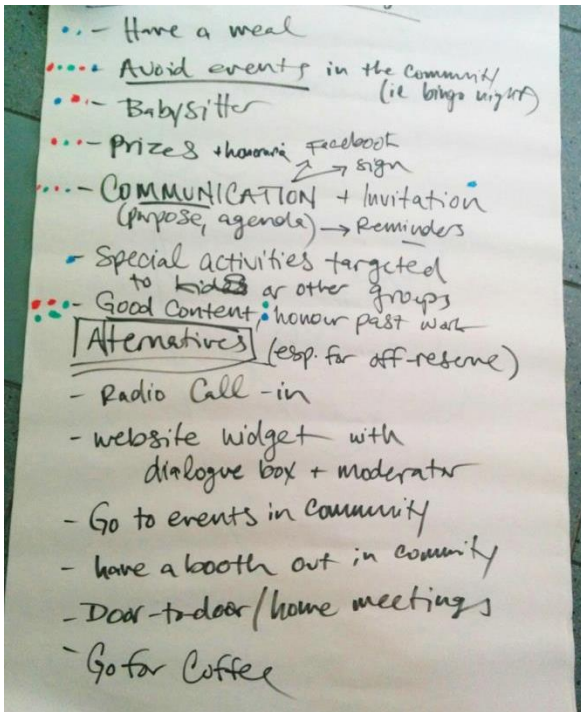 - Have a meal
- Avoid events in the community
(ie bingo night)
- Babysitter
- Prizes + honoraria Facebook
→ sign
- COMMUNICATION + Invitation
(purpose, agenda) → Reminders
- Special activities targeted
to kids or other groups
- Good Content, honour past work
Alternatives (esp. for off-reserve)
- Radio Call-in
- website widget with
dialogue box + moderator
- Go to events in Community
- have a booth out in community
- Door-to-door/home meetings
- Go for Coffee